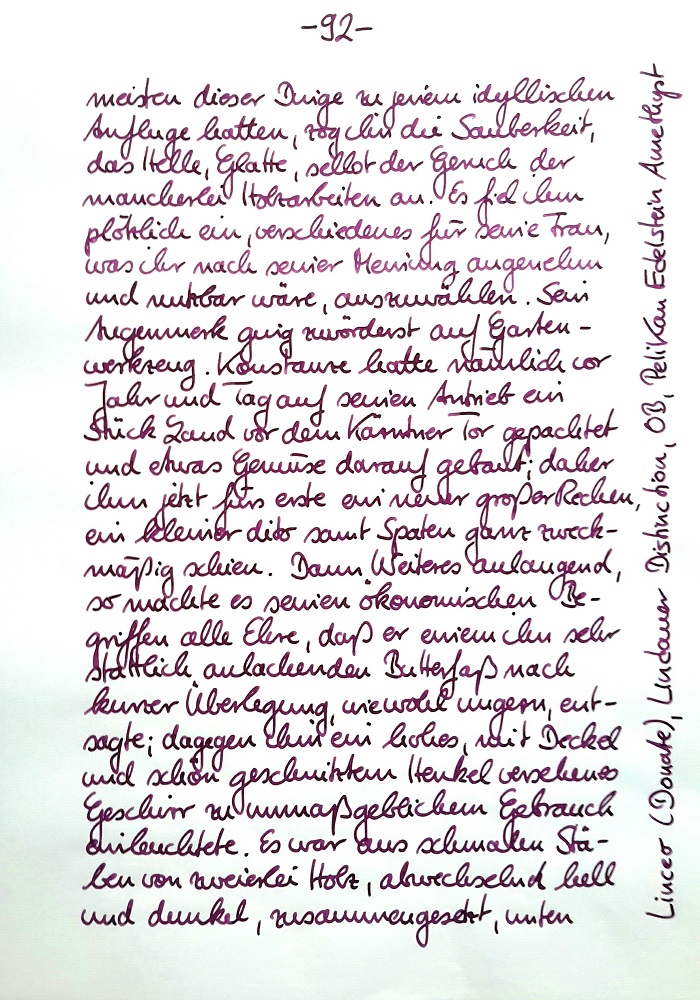 -92-
meisten dieser Dinge zu jenem idyllischen
Anfluge hatten, zog ihn die Sauberkeit,
das Helle, Glatte, selbst der Geruch der
mancherlei Holzarbeiten an. Es fiel ihm
plötzlich ein, verschiedenes für seine Frau,
was ihr nach seiner Meinung angenehm
und nutzbar wäre, auszuwählen. Sein
Augenmerk ging zuvörderst auf Garten-
werkzeug. Konstanze hatte nämlich vor
Jahr und Tag auf seinen Antrieb ein
Stück Land vor dem Kärntner Tor gepachtet
und etwas Gemüse darauf gebaut; daher
ihm jetzt fürs erste ein neuer großer Rechen,
ein kleiner dito samt Spaten ganz zweck-
mäßig schien. Dann Weiteres anlangend,
so machte es seinen ökonomischen Be-
griffen alle Ehre, daß er einem ihn sehr
stattlich anlachenden Butterfaß nach
kurzer Überlegung, wiewohl ungern, ent-
sagte; dagegen ihm ein hohes, mit Deckel
und schön geschnitztem Henkel versehenes
Geschirr zu unmaßgeblichem Gebrauch
einleuchtete. Es war aus schmalen Stä-
ben von zweierlei Holz, abwechselnd hell
und dunkel, zusammengesetzt, unten
Linceo (Donate), Lindauer Distinction, OB, Pelikan Edelstein Amethyst